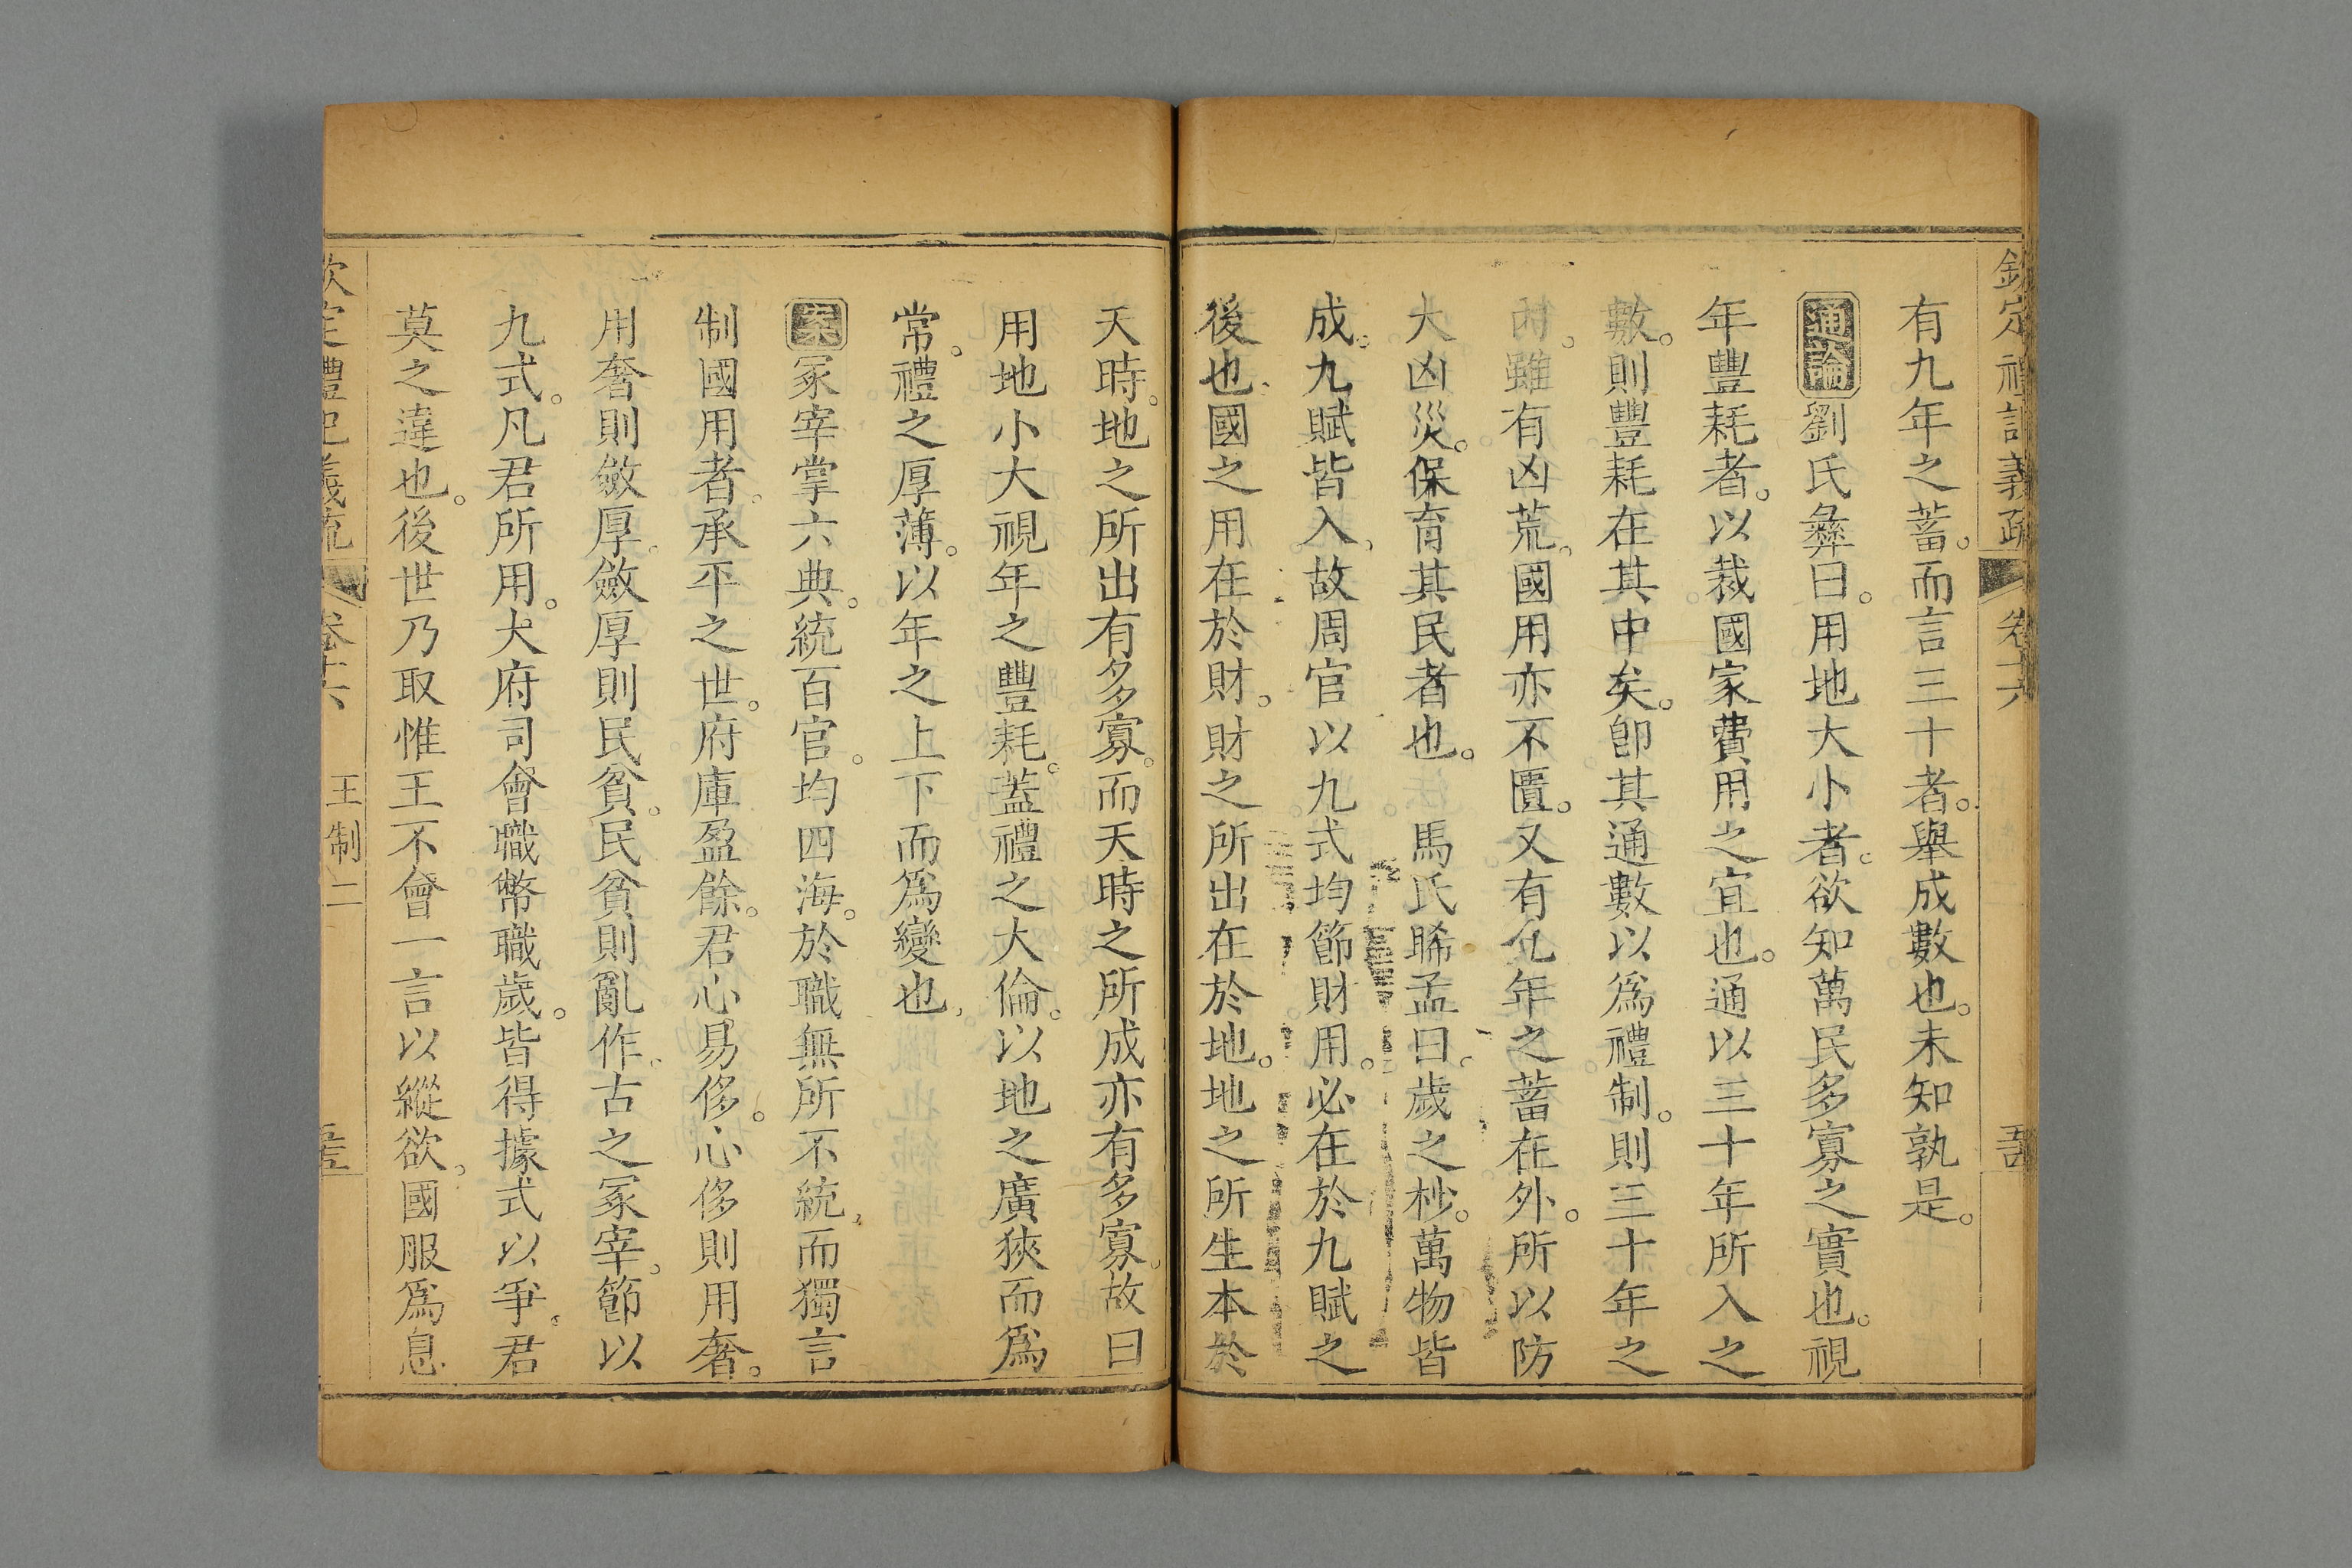 欽定禮記義疏 卷十六
有九年之蓄。而言三十者。舉成數也。未知孰是。
通論劉氏彝曰。用地大小者。欲知萬民多寡之實也。視
年豐耗者。以裁國家費用之宜也。通以三十年所入之
數。則豐耗在其中矣。卽其通數以爲禮制。則三十年之
內。雖有凶荒。國用亦不匱。又有九年之蓄在外。所以防
大凶災。保育其民者也。 馬氏睎孟曰。歲之杪。萬物皆
成。九賦皆入。故周官以九式均節財用。必在於九賦之
後也。國之用在於財。財之所出在於地。地之所生本於
天時。地之所出有多寡。而天時之所成亦有多寡。故曰
用地小大視年之豐耗。蓋禮之大倫。以地之廣狹而爲
常。禮之厚薄。以年之上下而爲變也。
案冢宰掌六典。統百官。均四海。於職無所不統。而獨言
制國用者。承平之世。府庫盈餘。君心易侈。心侈則用奢。
用奢則斂厚。斂厚則民貧。民貧則亂作。古之冢宰。節以
九式。凡君所用。大府司會職幣職歲。皆得據式以爭。君
莫之違也。後世乃取惟王不會一言以縱欲。國服爲息
欽定禮記義疏 卷十六 王制二